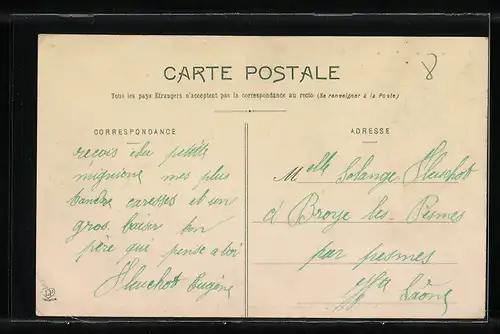 CARTE POSTALE
Tous les pays Étrangers n'acceptent pas la correspondance au recto (Se renseigner à la Poste)
CORRESPONDANCE
reçois chu petite
mignione mes plus
tandre caresses et un
gros baiser ton
père qui pense a toi
Huchot Eugène
ADRESSE
Melle Solange Huchot
à Broye les Pesmes
par pesmes
Hte Saône